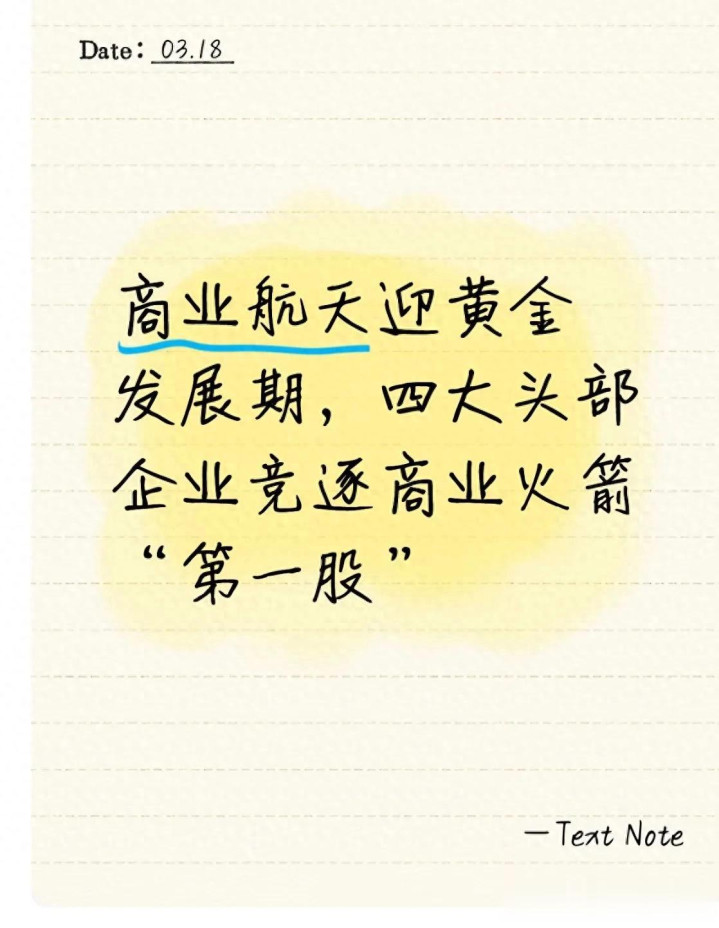 Date: 03.18
商业航天迎黄金
发展期，四大头部
企业竞逐商业火箭
“第一股”
—Text Note